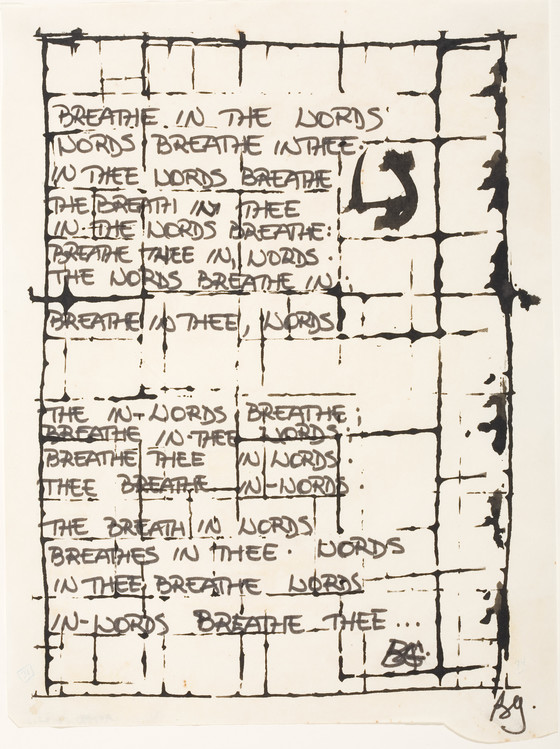 BREATHE IN THE WORDS
WORDS BREATHE IN THEE.
IN THEE WORDS BREATHE
THE BREATH IN THEE
IN THE WORDS BREATHE:
BREATHE THEE IN, WORDS.
THE WORDS BREATHE IN;
BREATHE IN THEE, WORDS
THE IN-WORDS BREATHE;
BREATHE IN THEE WORDS
BREATHE THEE IN WORDS.
THEE BREATHE IN-WORDS.
THE BREATH IN WORDS
BREATHES IN THEE. WORDS
IN THEE BREATHE WORDS
IN-WORDS BREATHE THEE ...
BG.
Bg.